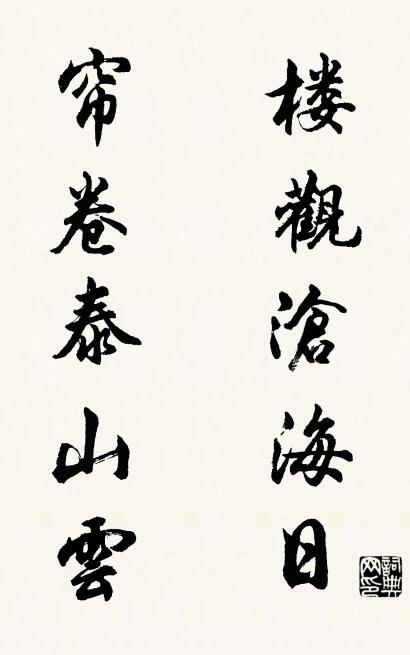 楼觀滄海日
帘卷泰山雲
詞典網印